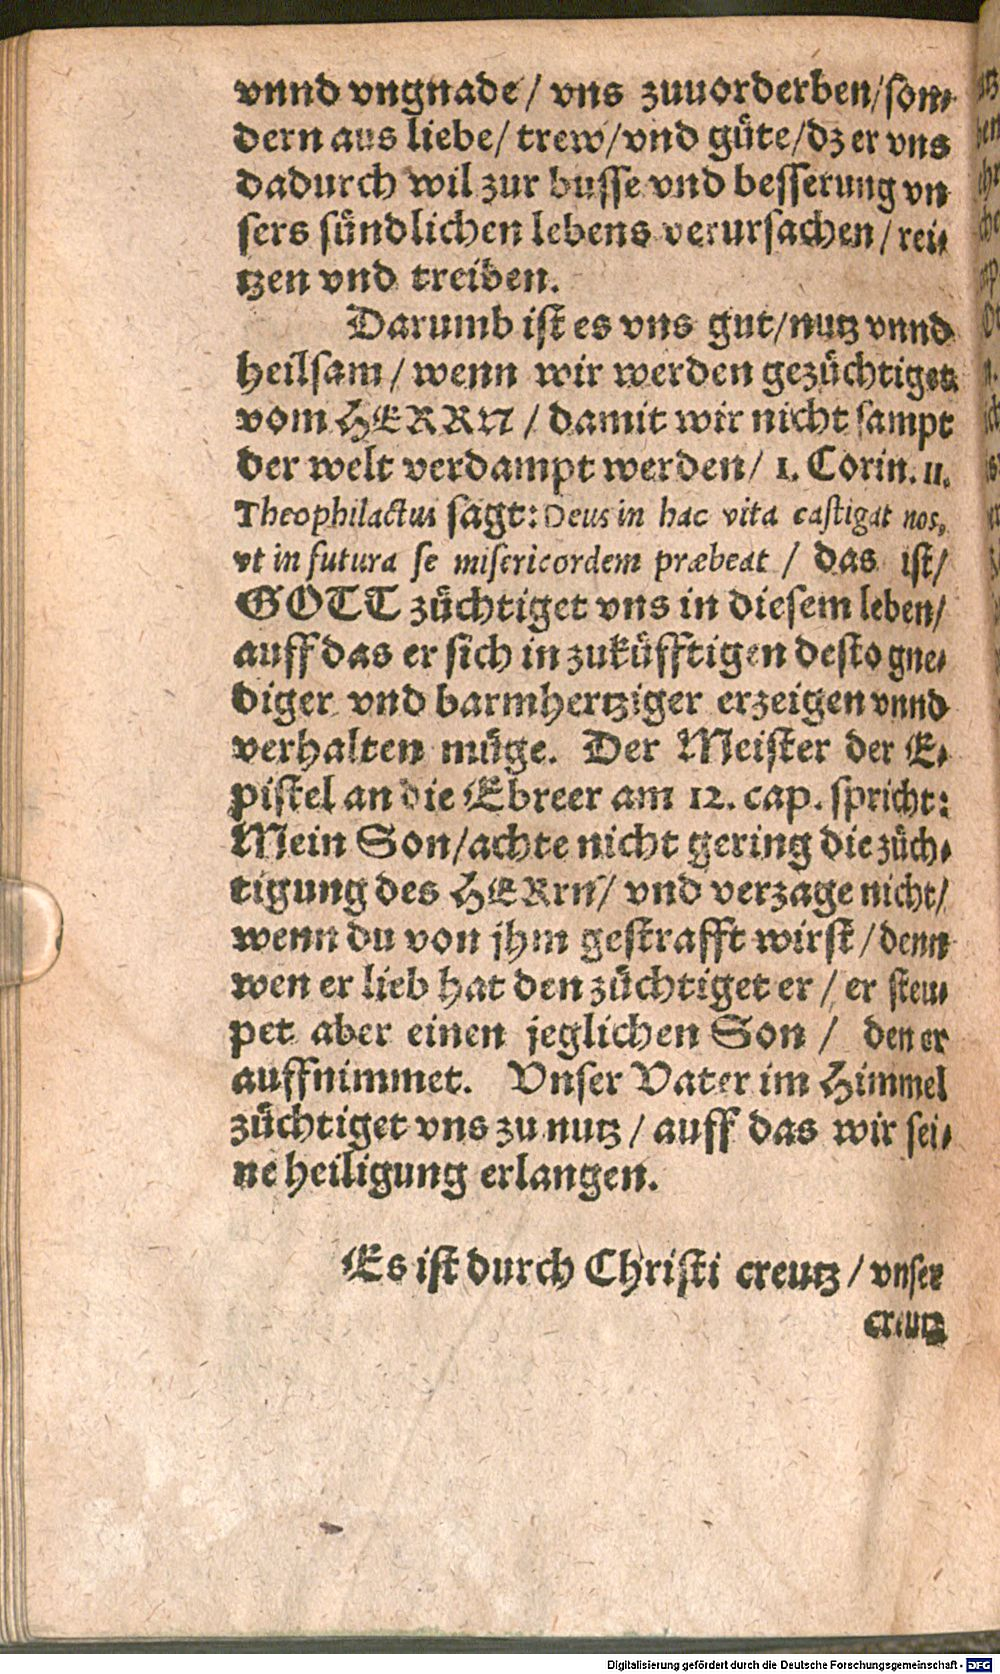 vnnd vngnade/ vns zuuorderben/son⸗
dern aus liebe/ trew/vnd güte/dz er vns
dadurch wil zur busse vnd besserung vn
sers sündlichen lebens verursachen/ rei⸗
tzen vnd treiben.
Darumb ist es vns gut/nutz vnnd
heilsam/ wenn wir werden gezüchtiget
vom HERRN / damit wir nicht sampt
der welt verdampt werden/ 1. Corin. 11.
Theophilactus sagt: Deus in hac vita castigat nos,
vt in futura se misericordem præbeat / das ist/
GOTT züchtiget vns in diesem leben/
auff das er sich in zuküfftigen desto gne⸗
diger vnd barmhertziger erzeigen vnnd
verhalten müge. Der Meister der E⸗
pistel an die Ebreer am 12. cap. spricht:
Mein Son/achte nicht gering die züch⸗
tigung des HERrn/ vnd verzage nicht/
wenn du von jhm gestrafft wirst/denn
wen er lieb hat den züchtiget er/ er steu⸗
pet aber einen jeglichen Son / den er
auffnimmet. Vnser Vater im Himmel
züchtiget vns zu nutz/ auff das wir sei⸗
ne heiligung erlangen.
Es ist durch Christi creutz/ vnser
creutz
Digitalisierung gefördert durch die Deutsche Forschungsgemeinschaft - DFG